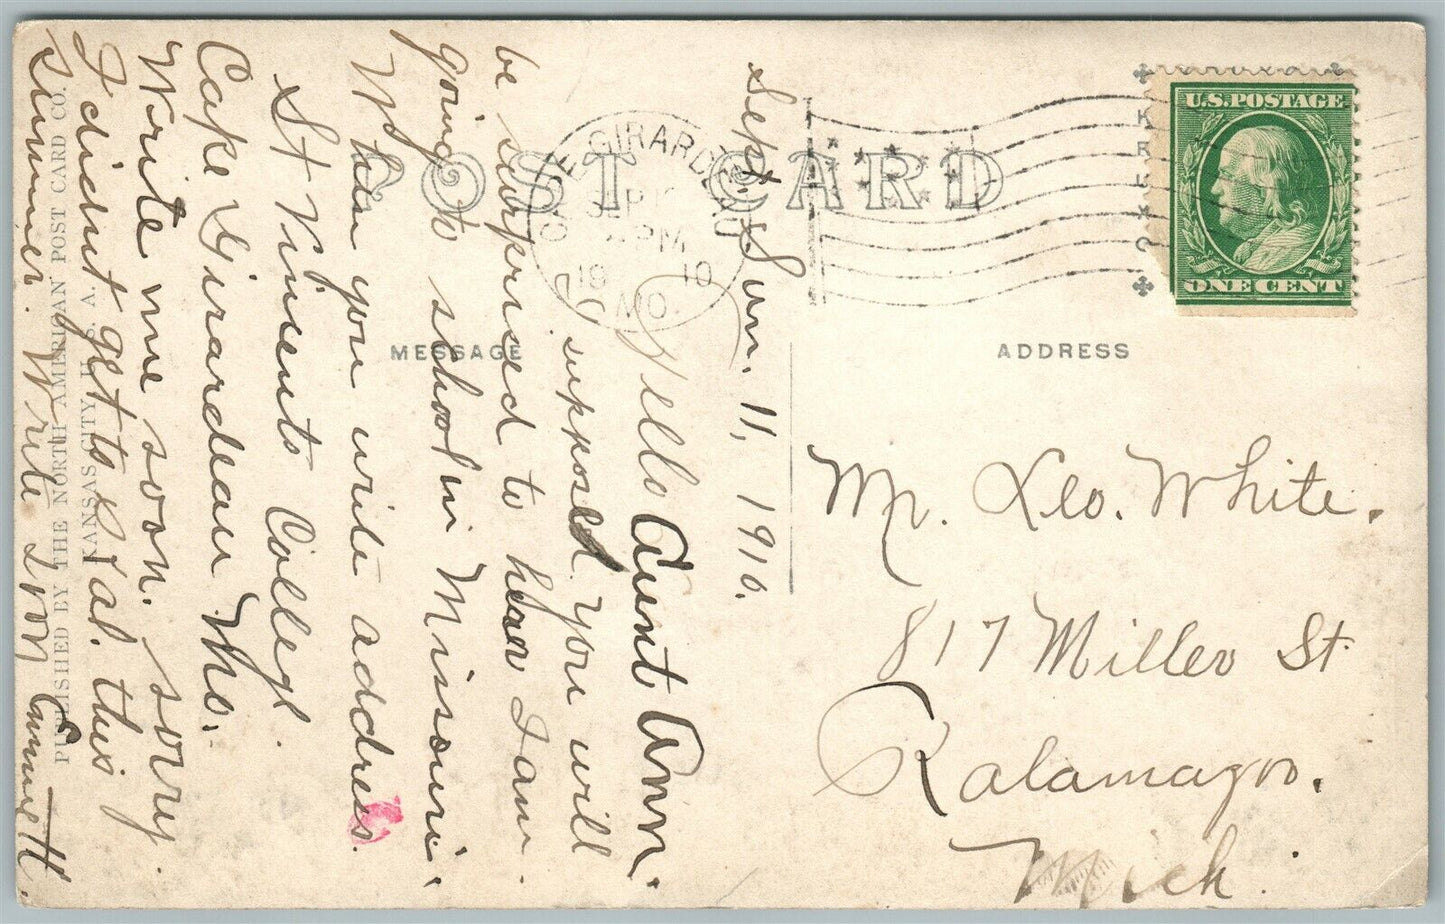 POST CARD
U.S.POSTAGE
ONE CENT
CAPE GIRARDEAU
SEP
PM
19 10
MO.
MESSAGE
ADDRESS
Sept. Sun. 11, 1910.
Hello Aunt Ann.
I suppose you will
be surprised to hear I am
going to school in Missouri.
When you write address.
St Vincents College.
Cape Girardeau Mo.
Write me soon. Sorry
I didnt get to Kal. this
summer. Write soon Emmet H.
Mr. Leo. White.
817 Miller St.
Kalamazoo.
Mich.
PUBLISHED BY THE NORTH AMERICAN POST CARD CO.
KANSAS CITY, U. S. A.